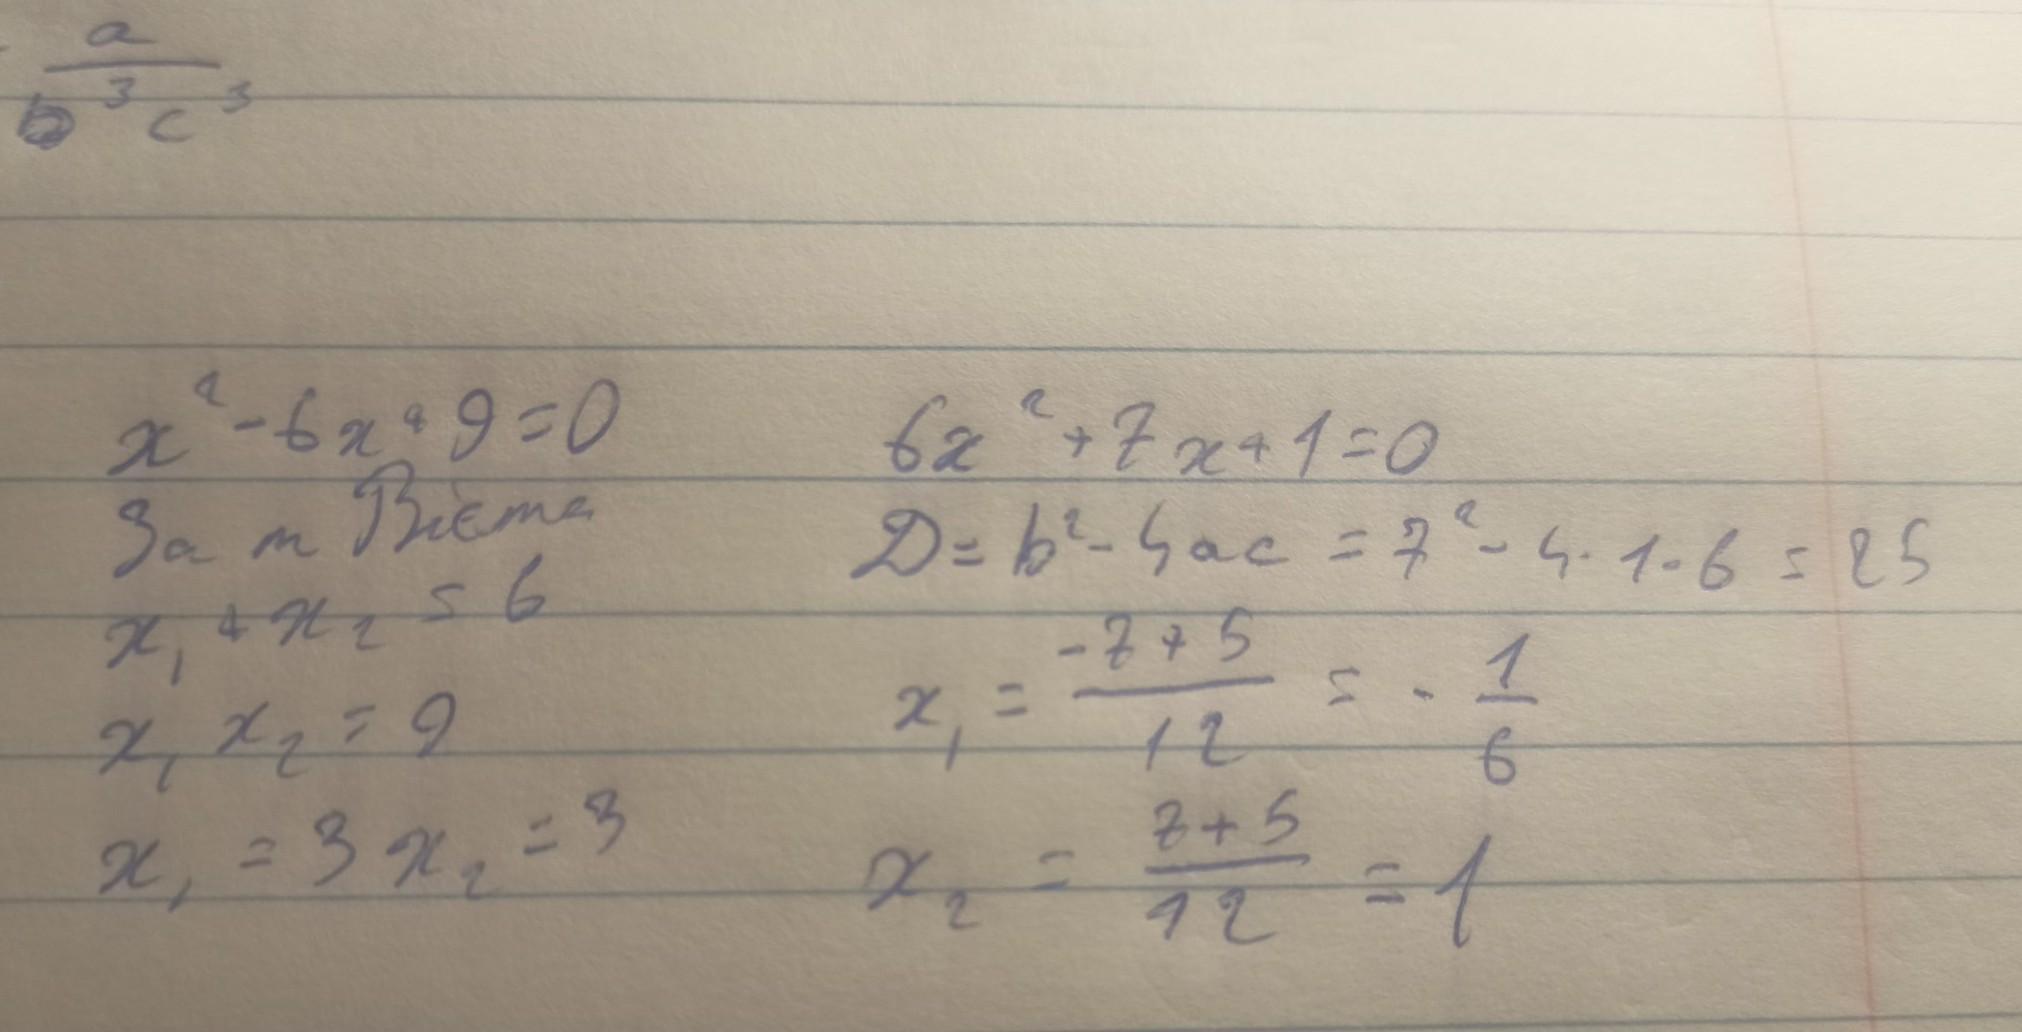 a
b³c³
x² - 6x + 9 = 0
За т Вієта
x₁ + x₂ = 6
x₁ x₂ = 9
x₁ = 3 x₂ = 3
6x² + 7x + 1 = 0
D = b² - 4ac = 7² - 4 · 1 · 6 = 25
x₁ = (-7 + 5)/12 = - 1/6
x₂ = (7 + 5)/12 = 1